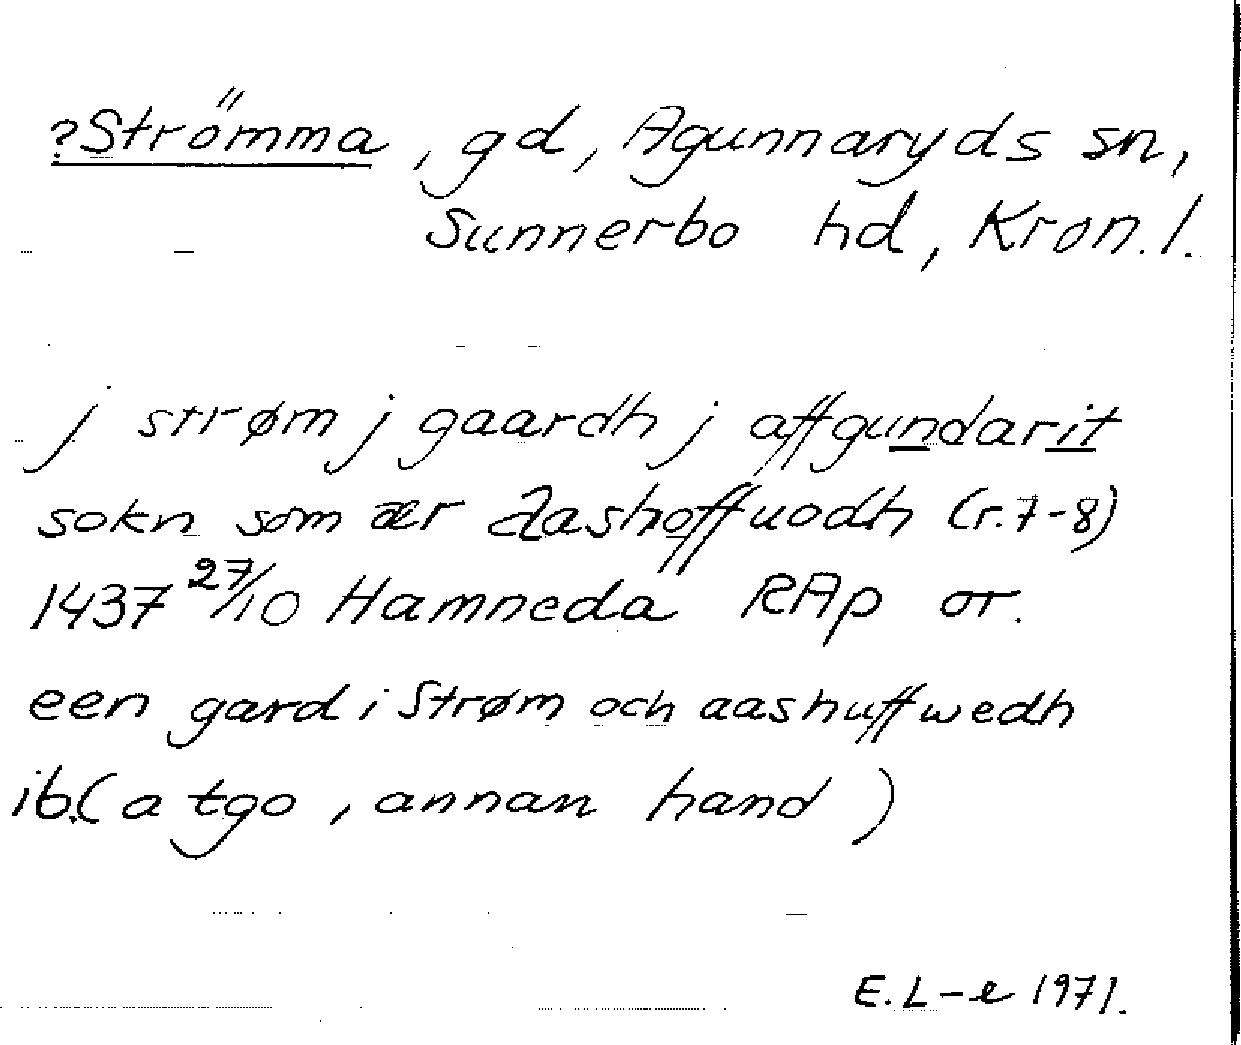 ?Strömma, gd, Agunnaryds sn,
Sunnerbo hd, Kron. l.
j strøm j gaardh j affgundarit
sokn som ær aashoffuodh (r. 7-8)
1437 27/10 Hamneda RAp or.
een gard i Strøm och aashuffwedh
ib. (a tgo, annan hand)
E. L-e 1971.